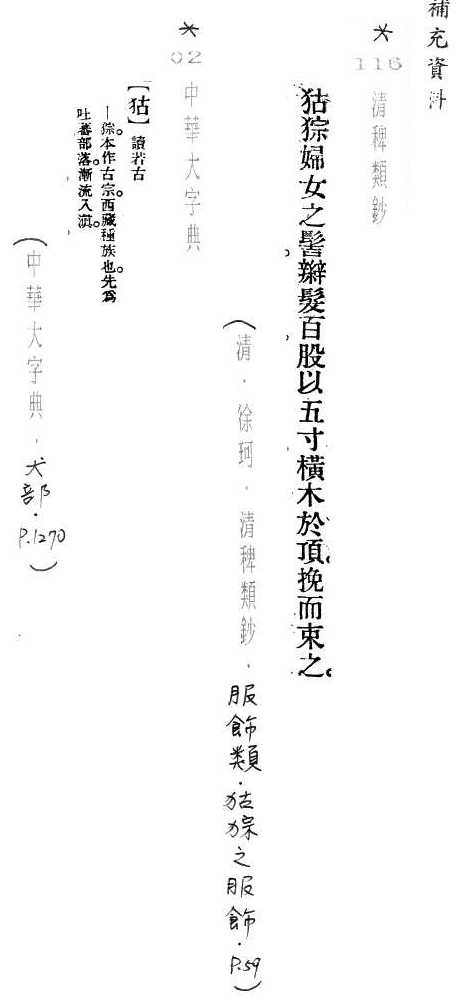 補充資料
*
116 清稗類鈔
猍婦女之髻,辮髮百股,以五寸橫木於頂,挽而束之。
(清.徐珂.清稗類鈔.服飾類.猍之服飾.P.59)
*
02 中華大字典
【狜】讀若古
—猔本作古宗。西藏種族也。先爲
吐蕃部落。漸流入滇。
(中華大字典.犬部.P.1270)